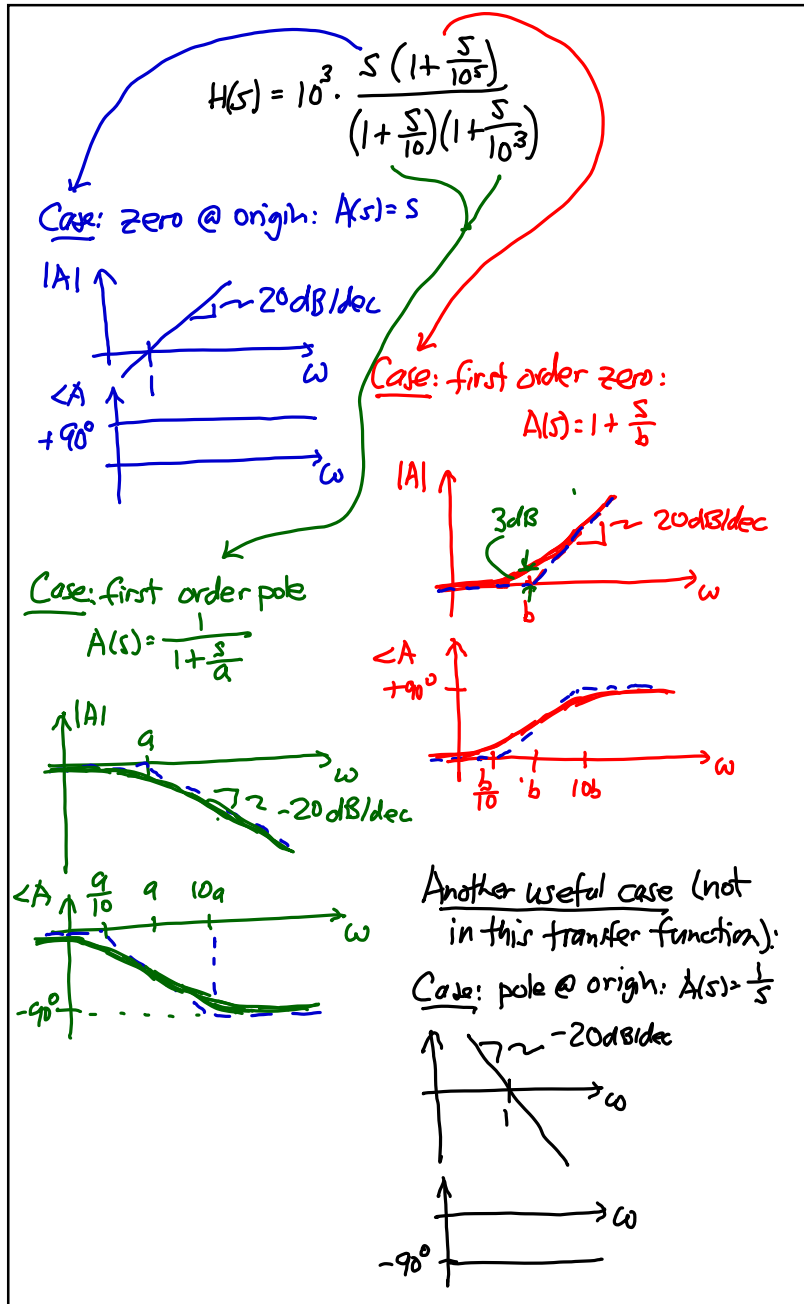 H(s) = 10³ · s (1 + s/10⁵) / (1 + s/10)(1 + s/10³)
Case: zero @ origin: A(s) = s
|A|
~ 20dB/dec
1
ω
<A
+90°
ω
Case: first order zero:
A(s) = 1 + s/b
|A|
3dB
~ 20dB/dec
b
ω
<A
+90°
b/10
b
10b
ω
Case: first order pole
A(s) = 1/(1 + s/a)
|A|
a
ω
~ -20dB/dec
<A
a/10
a
10a
ω
-90°
Another useful case (not
in this transfer function):
Case: pole @ origin: A(s) = 1/s
~ -20dB/dec
1
ω
ω
-90°